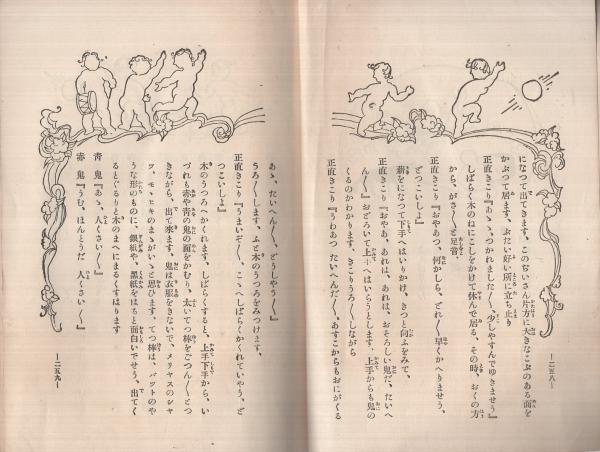 になつて出てきます。このぢいさん片方に大きなこぶのある面を
かぶつて居ます。ぶたい好い所に立ち止り
正直きこり『あゝ、つかれました〳〵、少しやすんでゆきませう』
しばらく木のねにこしをかけて休んで居る、その時、おくの方
から、がさ〳〵と足音。
正直きこり『おやあつ、何かしら、どれ〳〵早くかへりませう、
どつこいしよ』
薪をになつて下手へはいりかけ、きつと向ふをみて、
正直きこり『おやあ、あれは、あれは、おそろしい鬼だ、たいへ
ん〳〵』おどろいて上手へはいらうとします。上手からも鬼の
くるのかわかります。きこりうろ〳〵しながら
正直きこり『うわあつ たいへんだ〳〵、あすこからもおにがくる
―二五八―
あゝ、たいへん〳〵、どうしやう〳〵』
うろ〳〵します、ふと木のうつろをみつけます、
正直きこり『うまいぞ〳〵、こゝへしばらくかくれていやう、ど
つこいしよ』
木のうつろへかくれます。しばらくすると、上手下手から、い
づれも赤や青の鬼の面をかむり、太いてつ棒をごつん〳〵とつ
きながら、出て來ます。鬼は衣服をきないで、メリヤスのシャ
ツ、モヽヒキのまゝがいゝと思ひます、てつ棒は、バットのや
うな形のものに、銀紙や、黒紙をはると面白いでせう、出てく
るとぐるりと木のまへにまるくすはります
青 鬼『あゝ、人くさい〳〵』
赤 鬼『うむ、ほんとうだ 人くさい〳〵』
―二五九―